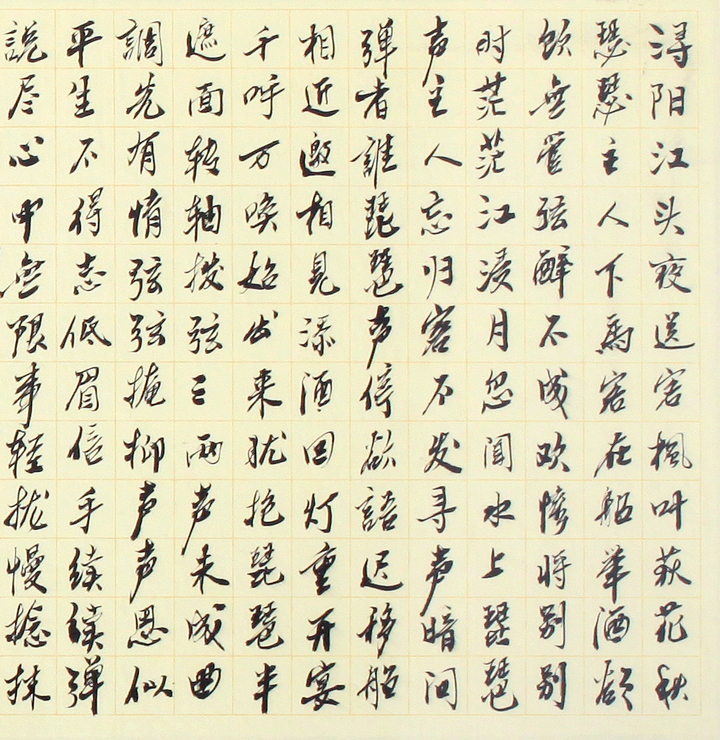 浔阳江头夜送客枫叶荻花秋
瑟瑟主人下馬客在船举酒欲
饮無管弦醉不成欢惨将别别
时茫茫江浸月忽闻水上琵琶
声主人忘归客不发寻声暗问
弹者誰琵琶声停欲語迟移船
相近邀相見添酒回灯重开宴
千呼万唤始出来犹抱琵琶半
遮面转轴拨弦三两声未成曲
調先有情弦弦掩抑声声思似
平生不得志低眉信手续续弹
説尽心中無限事輕拢慢捻抹